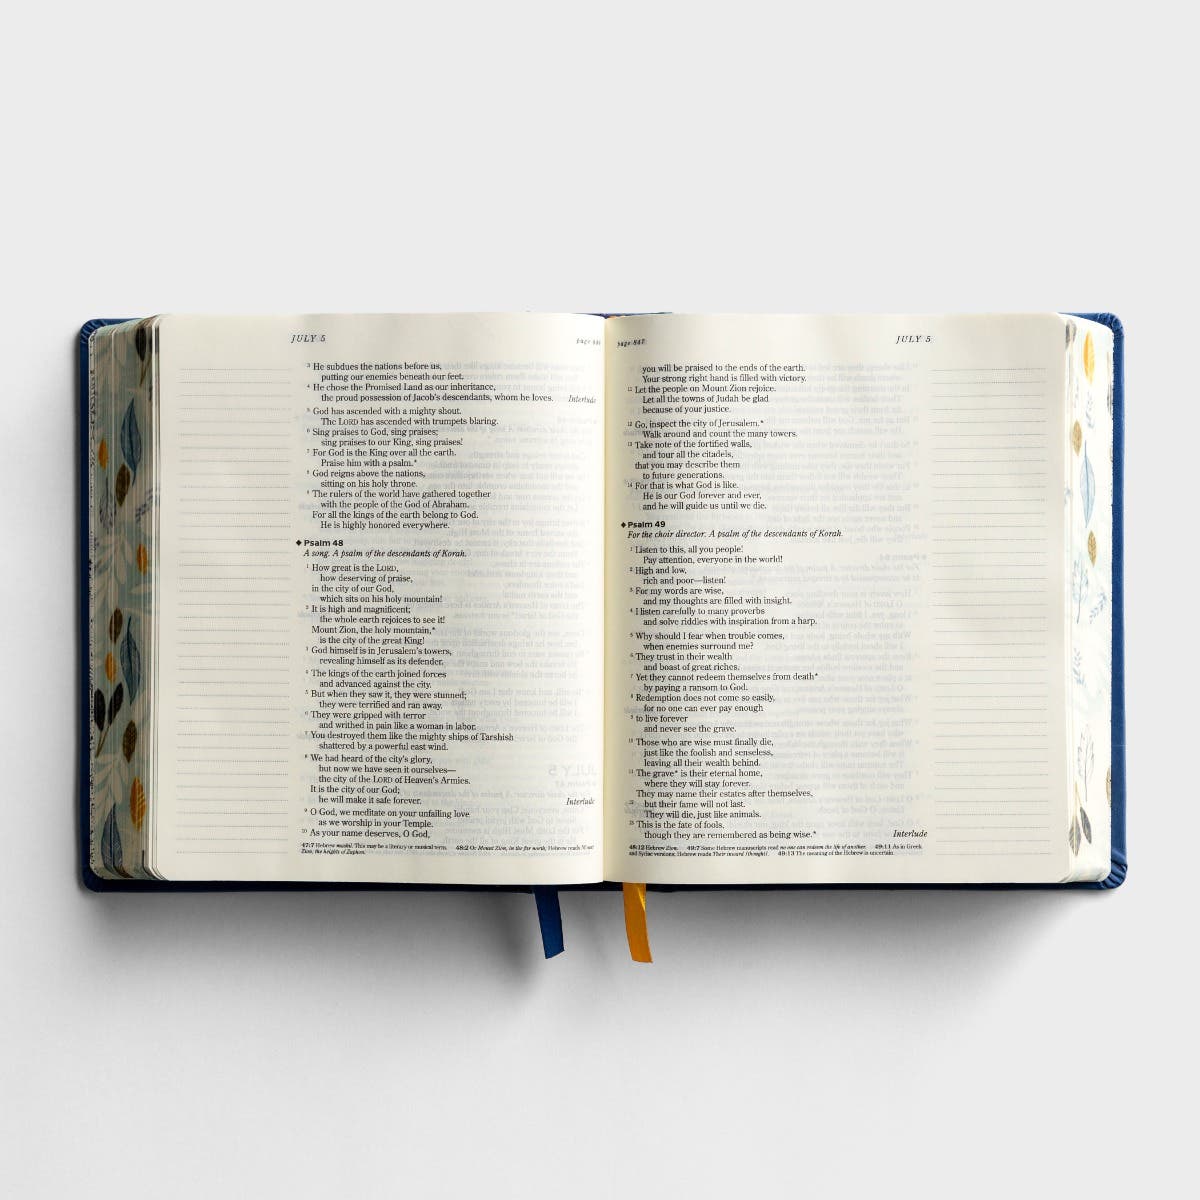 JULY 5
page
3 He subdues the nations before us,
putting our enemies beneath our feet.
4 He chose the Promised Land as our inheritance,
the proud possession of Jacob's descendants, whom he loves. Interlude
5 God has ascended with a mighty shout.
The LORD has ascended with trumpets blaring.
6 Sing praises to God, sing praises;
sing praises to our King, sing praises!
7 For God is the King over all the earth.
Praise him with a psalm.*
8 God reigns above the nations,
sitting on his holy throne.
9 The rulers of the world have gathered together
with the people of the God of Abraham.
For all the kings of the earth belong to God.
He is highly honored everywhere.
◆ Psalm 48
A song. A psalm of the descendants of Korah.
1 How great is the LORD,
how deserving of praise,
in the city of our God,
which sits on his holy mountain!
2 It is high and magnificent;
the whole earth rejoices to see it!
Mount Zion, the holy mountain,*
is the city of the great King!
3 God himself is in Jerusalem's towers,
revealing himself as its defender.
4 The kings of the earth joined forces
and advanced against the city.
5 But when they saw it, they were stunned;
they were terrified and ran away.
6 They were gripped with terror
and writhed in pain like a woman in labor.
7 You destroyed them like the mighty ships of Tarshish
shattered by a powerful east wind.
8 We had heard of the city's glory,
but now we have seen it ourselves—
the city of the LORD of Heaven's Armies.
It is the city of our God;
he will make it safe forever. Interlude
9 O God, we meditate on your unfailing love
as we worship in your Temple.
10 As your name deserves, O God,
47:7 Hebrew maskil. This may be a literary or musical term. 48:2 Or Mount Zion, in the far north; Hebrew reads Mount
Zion, the heights of Zaphon.
page 847
JULY 5
you will be praised to the ends of the earth.
Your strong right hand is filled with victory.
11 Let the people on Mount Zion rejoice.
Let all the towns of Judah be glad
because of your justice.
12 Go, inspect the city of Jerusalem.*
Walk around and count the many towers.
13 Take note of the fortified walls,
and tour all the citadels,
that you may describe them
to future generations.
14 For that is what God is like.
He is our God forever and ever,
and he will guide us until we die.
◆ Psalm 49
For the choir director: A psalm of the descendants of Korah.
1 Listen to this, all you people!
Pay attention, everyone in the world!
2 High and low,
rich and poor—listen!
3 For my words are wise,
and my thoughts are filled with insight.
4 I listen carefully to many proverbs
and solve riddles with inspiration from a harp.
5 Why should I fear when trouble comes,
when enemies surround me?
6 They trust in their wealth
and boast of great riches.
7 Yet they cannot redeem themselves from death*
by paying a ransom to God.
8 Redemption does not come so easily,
for no one can ever pay enough
9 to live forever
and never see the grave.
10 Those who are wise must finally die,
just like the foolish and senseless,
leaving all their wealth behind.
11 The grave* is their eternal home,
where they will stay forever.
They may name their estates after themselves,
12 but their fame will not last.
They will die, just like animals.
13 This is the fate of fools,
though they are remembered as being wise.* Interlude
48:12 Hebrew Zion. 49:7 Some Hebrew manuscripts read no one can redeem the life of another. 49:11 As in Greek
and Syriac versions; Hebrew reads Their inward [thought]. 49:13 The meaning of the Hebrew is uncertain.